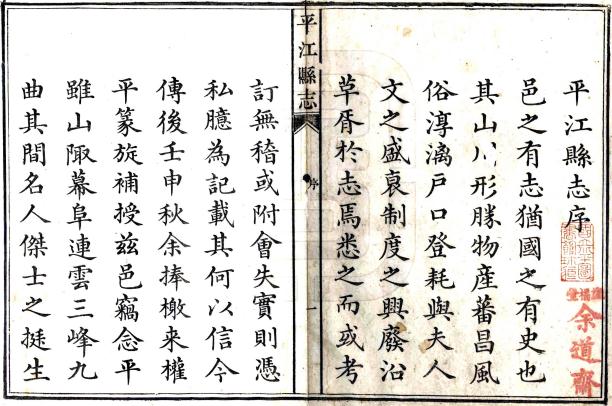 平江縣志序
邑之有志猶國之有史也
其山川形勝物産蕃昌風
俗淳漓戶口登耗與夫人
文之盛衰制度之興廢沿
草胥於志焉悉之而或考
平江縣志
序
一
訂無稽或附會失實則憑
私臆為記載其何以信今
傳後壬申秋余捧檄來權
平篆旋補授兹邑竊念平
雖山陬幕阜連雲三峰九
曲其間名人傑士之挺生
余道齋